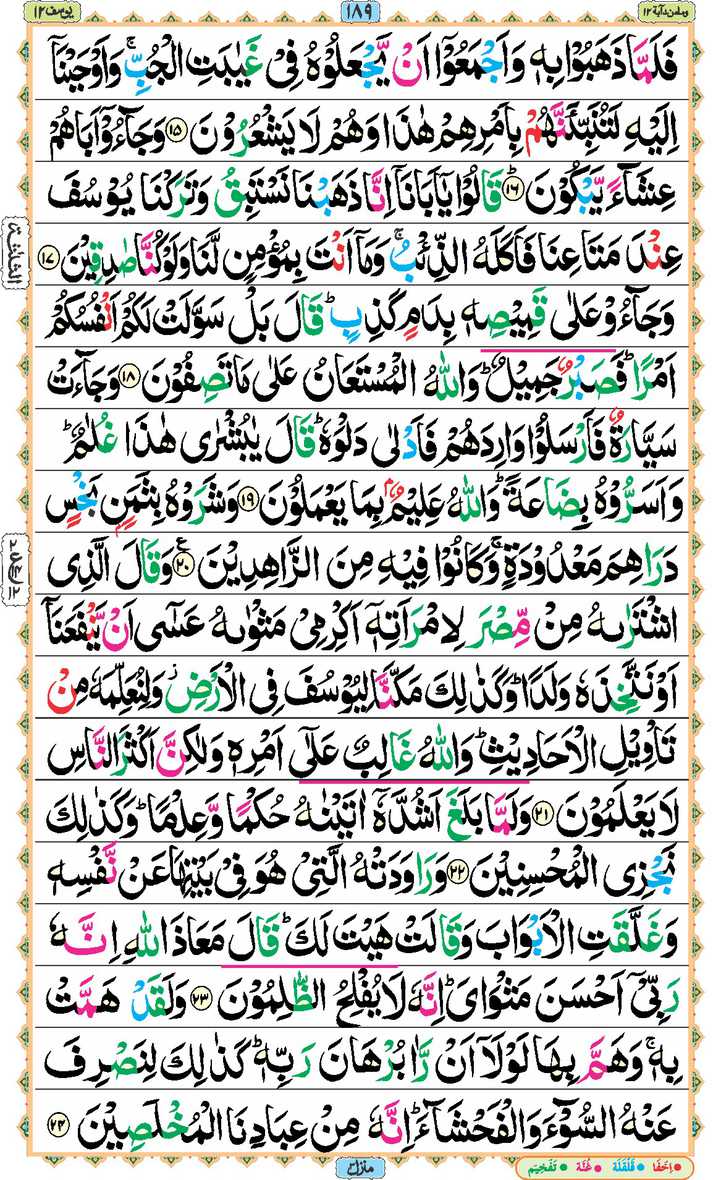 یوسف ۱۲
۱۸۹
ومامن دآبة ۱۲
فَلَمَّا ذَهَبُوْا بِهٖ وَاَجْمَعُوْۤا اَنْ یَّجْعَلُوْهُ فِیْ غَیٰبَتِ الْجُبِّ ۚ وَاَوْحَیْنَاۤ
اِلَیْهِ لَتُنَبِّئَنَّهُمْ بِاَمْرِهِمْ هٰذَا وَهُمْ لَا یَشْعُرُوْنَ ۝۱۵ وَجَآءُوْۤ اَبَاهُمْ
عِشَآءً یَّبْكُوْنَ ۝۱۶ؕ قَالُوْا یٰۤاَبَانَاۤ اِنَّا ذَهَبْنَا نَسْتَبِقُ وَتَرَكْنَا یُوْسُفَ
عِنْدَ مَتَاعِنَا فَاَكَلَهُ الذِّئْبُ ۚ وَمَاۤ اَنْتَ بِمُؤْمِنٍ لَّنَا وَلَوْ كُنَّا صٰدِقِیْنَ ۝۱۷
وَجَآءُوْ عَلٰی قَمِیْصِهٖ بِدَمٍ كَذِبٍ ؕ قَالَ بَلْ سَوَّلَتْ لَكُمْ اَنْفُسُكُمْ
اَمْرًا ؕ فَصَبْرٌ جَمِیْلٌ ؕ وَاللّٰهُ الْمُسْتَعَانُ عَلٰی مَا تَصِفُوْنَ ۝۱۸ وَجَآءَتْ
سَیَّارَةٌ فَاَرْسَلُوْا وَارِدَهُمْ فَاَدْلٰی دَلْوَهٗ ؕ قَالَ یٰبُشْرٰی هٰذَا غُلٰمٌ ؕ
وَاَسَرُّوْهُ بِضَاعَةً ؕ وَاللّٰهُ عَلِیْمٌۢ بِمَا یَعْمَلُوْنَ ۝۱۹ وَشَرَوْهُ بِثَمَنٍۭ بَخْسٍ
دَرَاهِمَ مَعْدُوْدَةٍ ۚ وَكَانُوْا فِیْهِ مِنَ الزَّاهِدِیْنَ ۝۲۰ع وَقَالَ الَّذِی
اشْتَرٰىهُ مِنْ مِّصْرَ لِامْرَاَتِهٖۤ اَكْرِمِیْ مَثْوٰىهُ عَسٰۤی اَنْ یَّنْفَعَنَاۤ
اَوْ نَتَّخِذَهٗ وَلَدًا ؕ وَكَذٰلِكَ مَكَّنَّا لِیُوْسُفَ فِی الْاَرْضِ ؗ وَلِنُعَلِّمَهٗ مِنْ
تَاْوِیْلِ الْاَحَادِیْثِ ؕ وَاللّٰهُ غَالِبٌ عَلٰۤی اَمْرِهٖ وَلٰكِنَّ اَكْثَرَ النَّاسِ
لَا یَعْلَمُوْنَ ۝۲۱ وَلَمَّا بَلَغَ اَشُدَّهٗۤ اٰتَیْنٰهُ حُكْمًا وَّعِلْمًا ؕ وَكَذٰلِكَ
نَجْزِی الْمُحْسِنِیْنَ ۝۲۲ وَرَاوَدَتْهُ الَّتِیْ هُوَ فِیْ بَیْتِهَا عَنْ نَّفْسِهٖ
وَغَلَّقَتِ الْاَبْوَابَ وَقَالَتْ هَیْتَ لَكَ ؕ قَالَ مَعَاذَ اللّٰهِ اِنَّهٗ
رَبِّیْۤ اَحْسَنَ مَثْوَایَ ؕ اِنَّهٗ لَا یُفْلِحُ الظّٰلِمُوْنَ ۝۲۳ وَلَقَدْ هَمَّتْ
بِهٖ ۚ وَهَمَّ بِهَا لَوْلَاۤ اَنْ رَّاٰ بُرْهَانَ رَبِّهٖ ؕ كَذٰلِكَ لِنَصْرِفَ
عَنْهُ السُّوْٓءَ وَالْفَحْشَآءَ ؕ اِنَّهٗ مِنْ عِبَادِنَا الْمُخْلَصِیْنَ ۝۲۴
منزل ۳
اِخْفَا قَلْقَلَه غُنَّه تَفْخِیْم